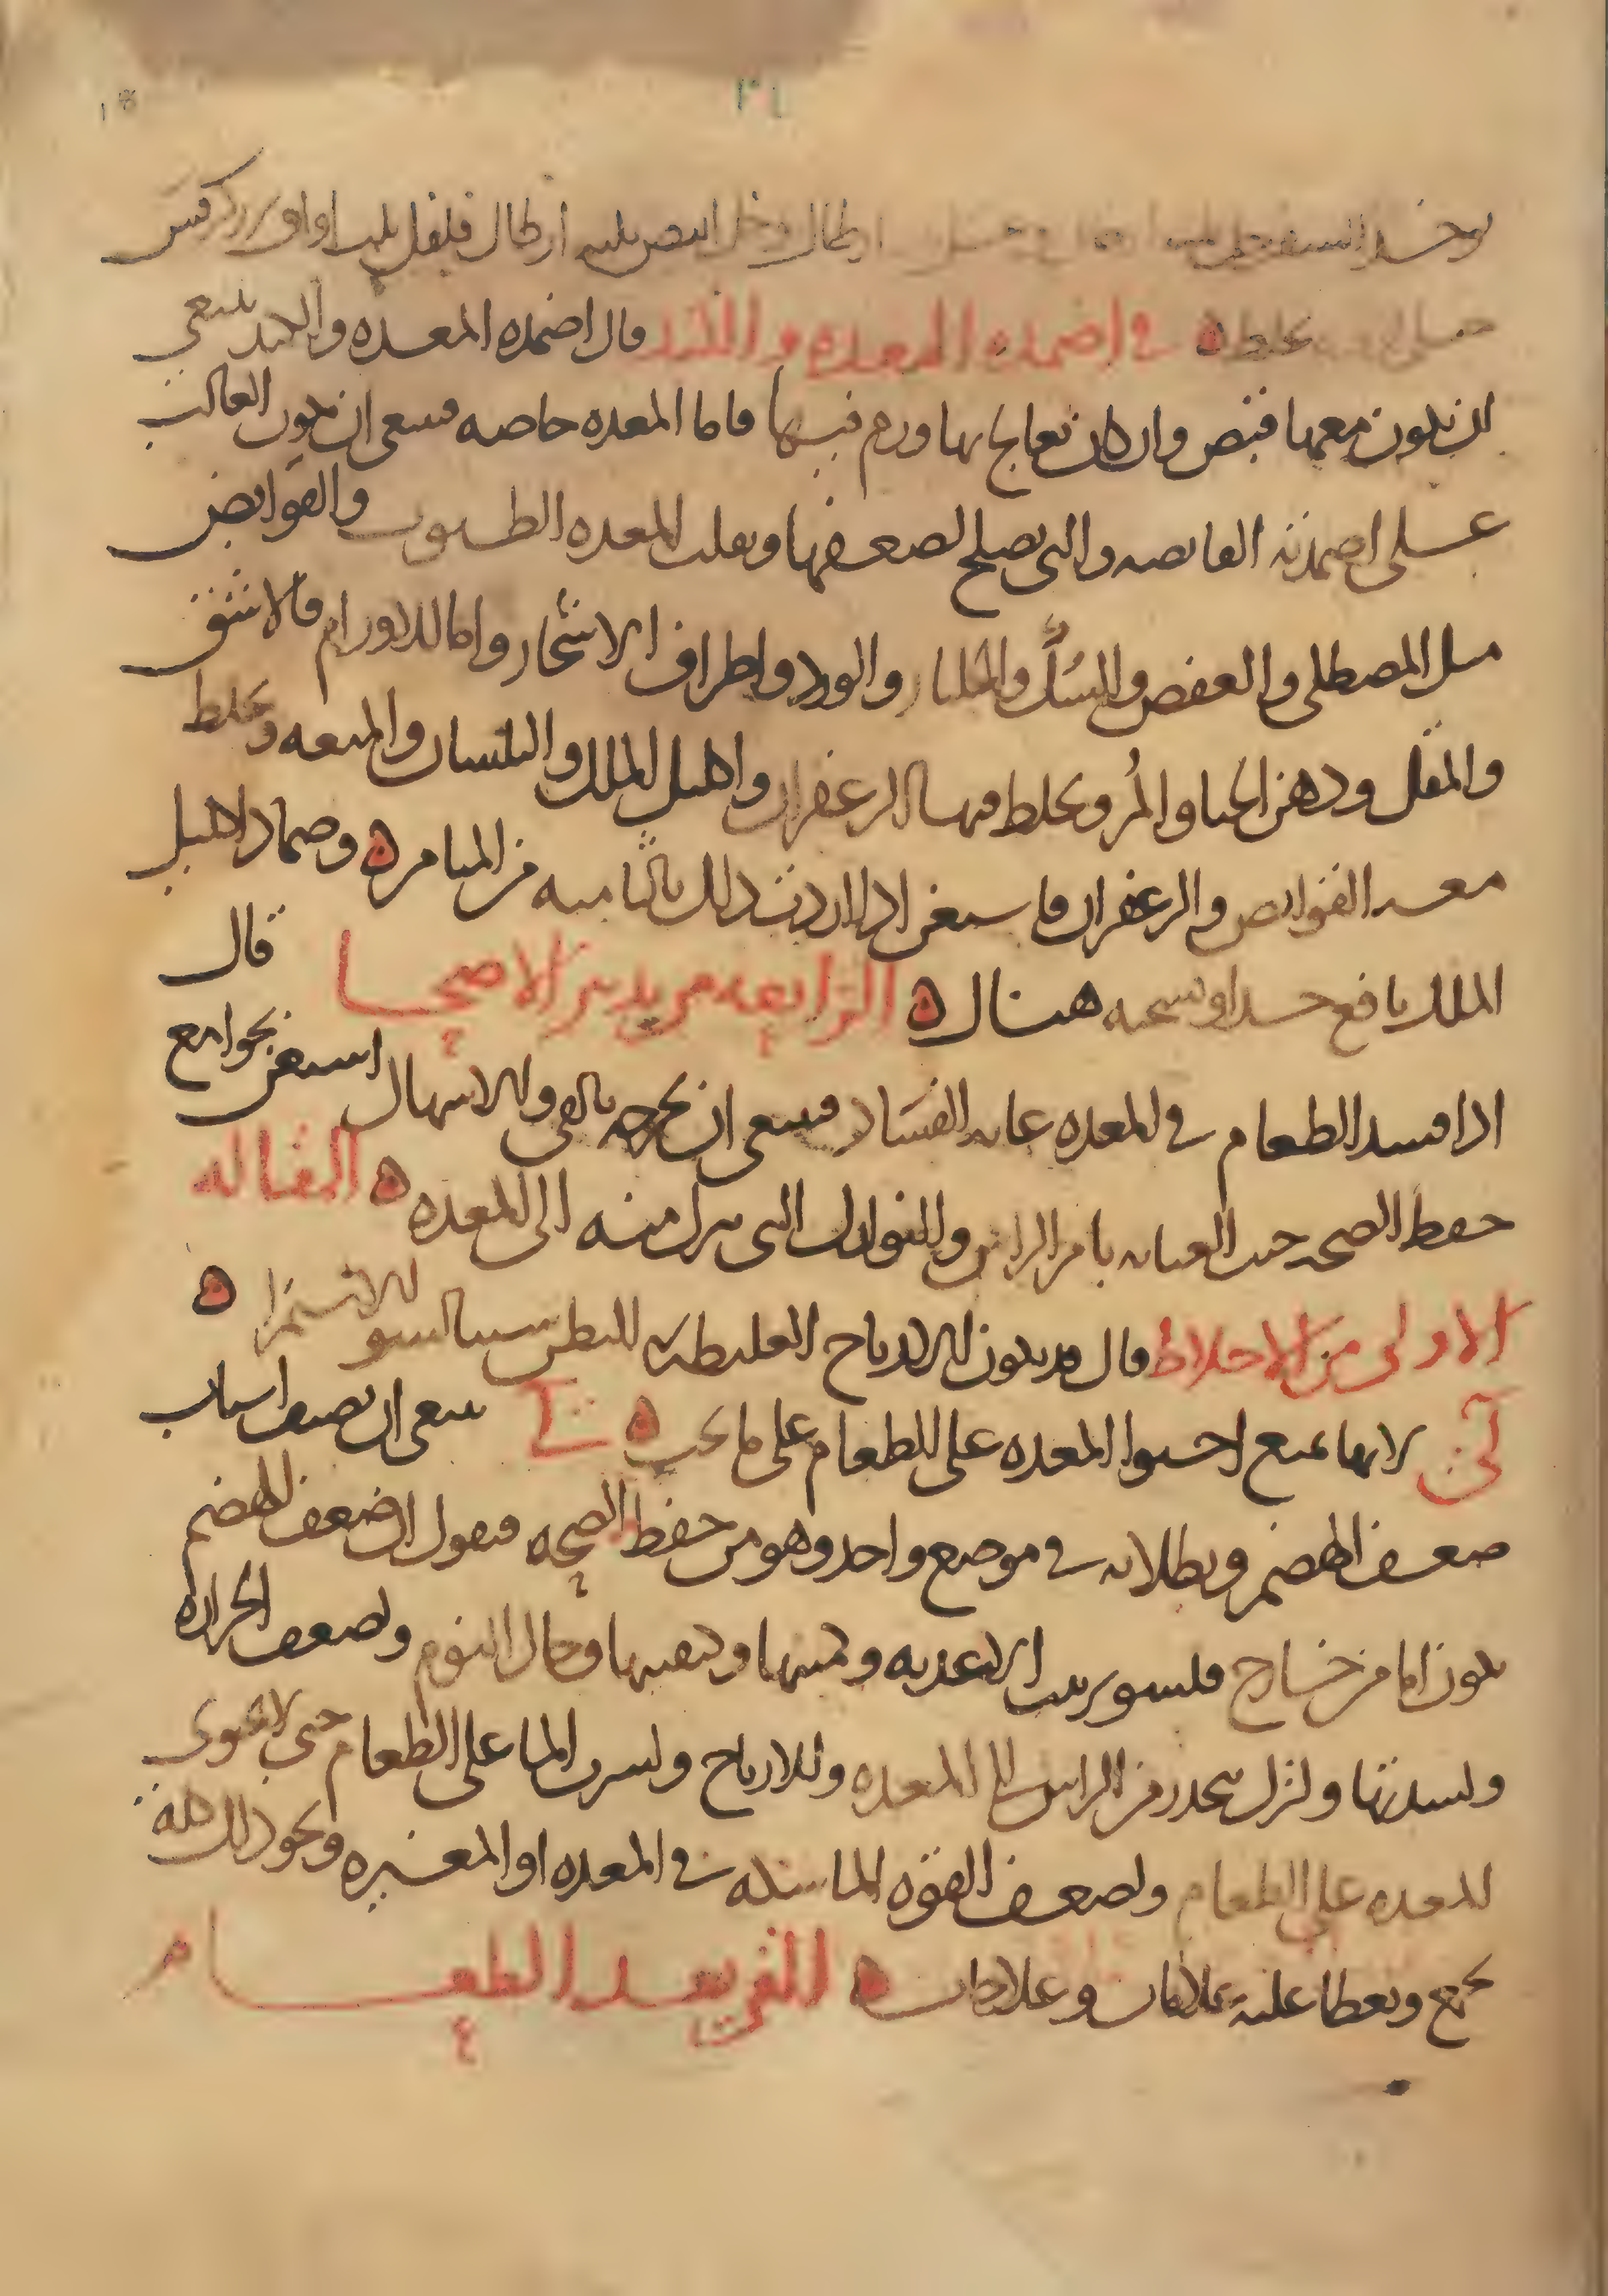 ارطال وخل ابيض ثلثه ارطال فلفل ثلث اواق بزر كرفس
يخلط ه في اضمده المعده والكبد قال اضمده المعده والكبد ينبغي
ان يكون معها قبض وان كان تعالج بها ورم فيها فاما المعده خاصه فينبغي ان يكون الغالب
على اضمدته القابضه والتي تصلح لضعفها وتقلب المعده الطيوب والقوابض
مثل المصطكى والعفص والسك والجلنار والورد واطراف الاشجار واما للاورام فالاشق
والمقل ودهن الحنا والمر ويخلط فيها الزعفران واكليل الملك والبلسان والميعه ويخلط
معه القوابض والزعفران فاستعن اذا اردت ذلك بالثامنه من الميامر ه وضماد اكليل
الملك نافع جدا ونسخته هناك ه الرابعه من تدبير الاصحا قال
اذا فسد الطعام في المعده غايه الفساد فينبغي ان يخرجه بالقي والاسهال استعن بجوامع
حفظ الصحه حيث العنايه بامر الراس والنوازل التي تنزل منه الى المعده ه المقاله
الاولى من الاخلاط قال قد يكون الارياح الغليظه في البطن سببا لسو الاستمرا ه
لي لانها تمنع احتوا المعده على الطعام على ما يجب ه ينبغي ان نصف اسباب
ضعف الهضم وبطلانه في موضع واحد وهو من حفظ الصحه فنقول ان ضعف الهضم
يكون اما من خارج فلسو ترتيب الاغذيه وكميتها وكيفيتها وحال النوم ولضعف الحراره
ولشدتها ولنزل ينحدر من الراس الى المعده وللارياح ولشرب الما على الطعام حتى لا تحتوي
المعده على الطعام ولضعف القوه الماسكه في المعده او المغيره ونحو ذلك كله
يجمع ويعطا عليه علامات وعلاجات ه الطعام